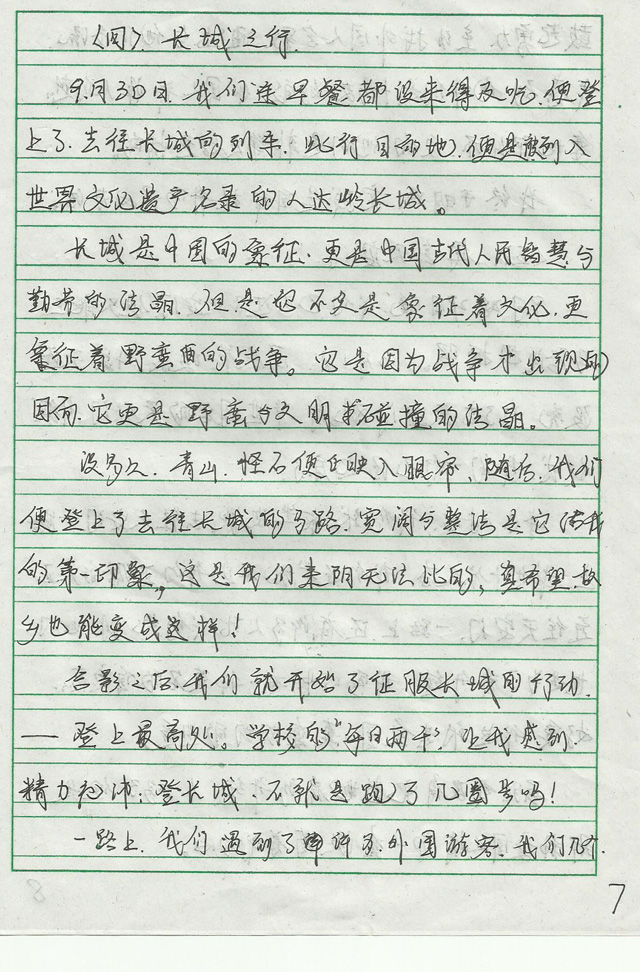 〈四〉. 长城之行.
9月30日. 我们连早餐都没来得及吃. 便登
上了. 去往长城的列车. 此行目的地. 便是被列入
世界文化遗产名录的八达岭长城。
长城是中国的象征. 更是中国古代人民智慧与
勤劳的结晶. 但是它不仅是象征着文化. 更
象征着野蛮的战争。它是因为战争才出现的
因而. 它更是野蛮与文明碰撞的结晶。
没多久. 青山. 怪石便映入眼帘、随后. 我们
便登上了去往长城的马路. 宽阔与整洁是它给我
的第一印象。这是我们耒阳无法比的, 真希望. 故
乡也能变成这样!
合影之后. 我们就开始了征服长城的行动.
— 登上最高处。学校的"每日两千". 让我感到.
精力充沛. 登长城. 不就是跑了几圈步吗!
一路上. 我们遇到了许多外国游客. 我们几个.
7
8